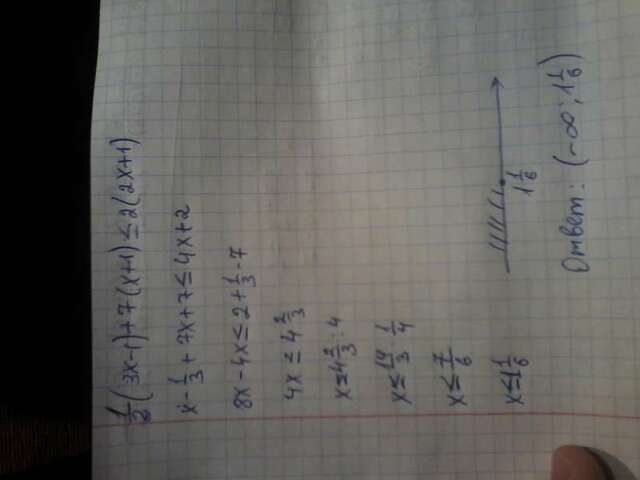 1/3(3x-1)+7(x+1)≤2(2x+1)
x-1/3+7x+7≤4x+2
8x-4x≤2+1/3-7
4x≤4 2/3
x≤4 2/3:4
x≤14/3·1/4
x≤7/6
x≤1 1/6
1 1/6
Ответ: (-∞; 1 1/6)